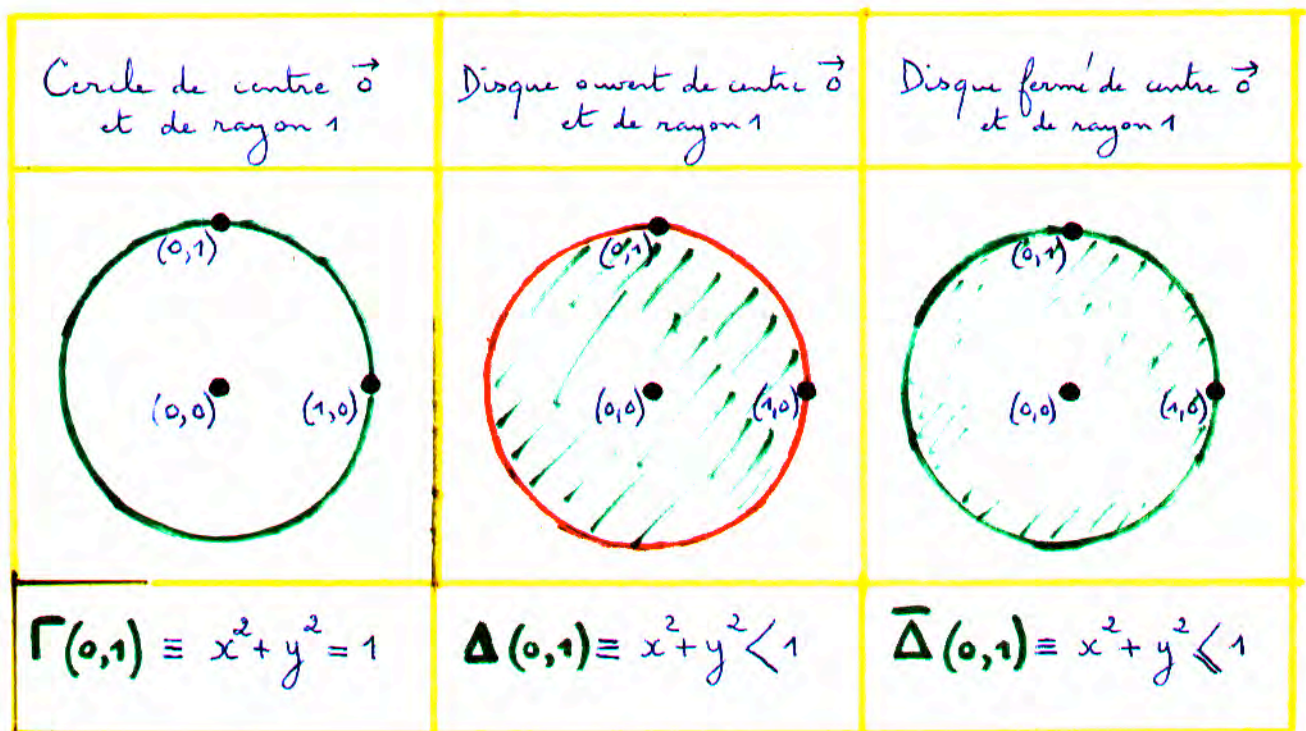 Cercle de centre $\vec{o}$
et de rayon 1
Disque ouvert de centre $\vec{o}$
et de rayon 1
Disque fermé de centre $\vec{o}$
et de rayon 1
(0,1)
(0,0)
(1,0)
(0,1)
(0,0)
(1,0)
(0,1)
(0,0)
(1,0)
Γ(0,1) ≡ x² + y² = 1
Δ(0,1) ≡ x² + y² < 1
$\overline{Δ}$(0,1) ≡ x² + y² ⩽ 1